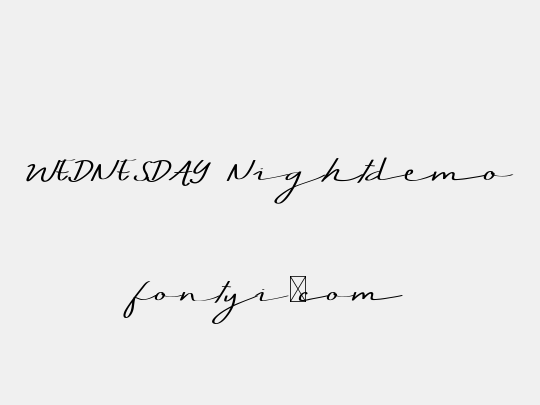 WEDNESDAY Nightdemo
fontyi☒com